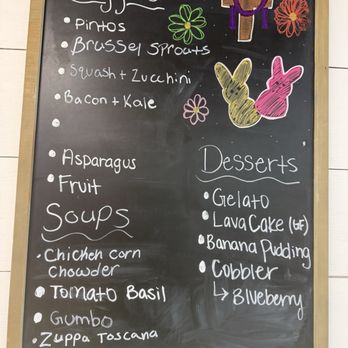 • Pintos
• Brussel Sprouts
• Squash + Zucchini
• Bacon + Kale
•
• Asparagus
• Fruit
Soups
• Chicken corn
chowder
• Tomato Basil
• Gumbo
• Zuppa Toscana
Desserts
• Gelato
• Lava Cake (GF)
• Banana Pudding
• Cobbler
↳ Blueberry